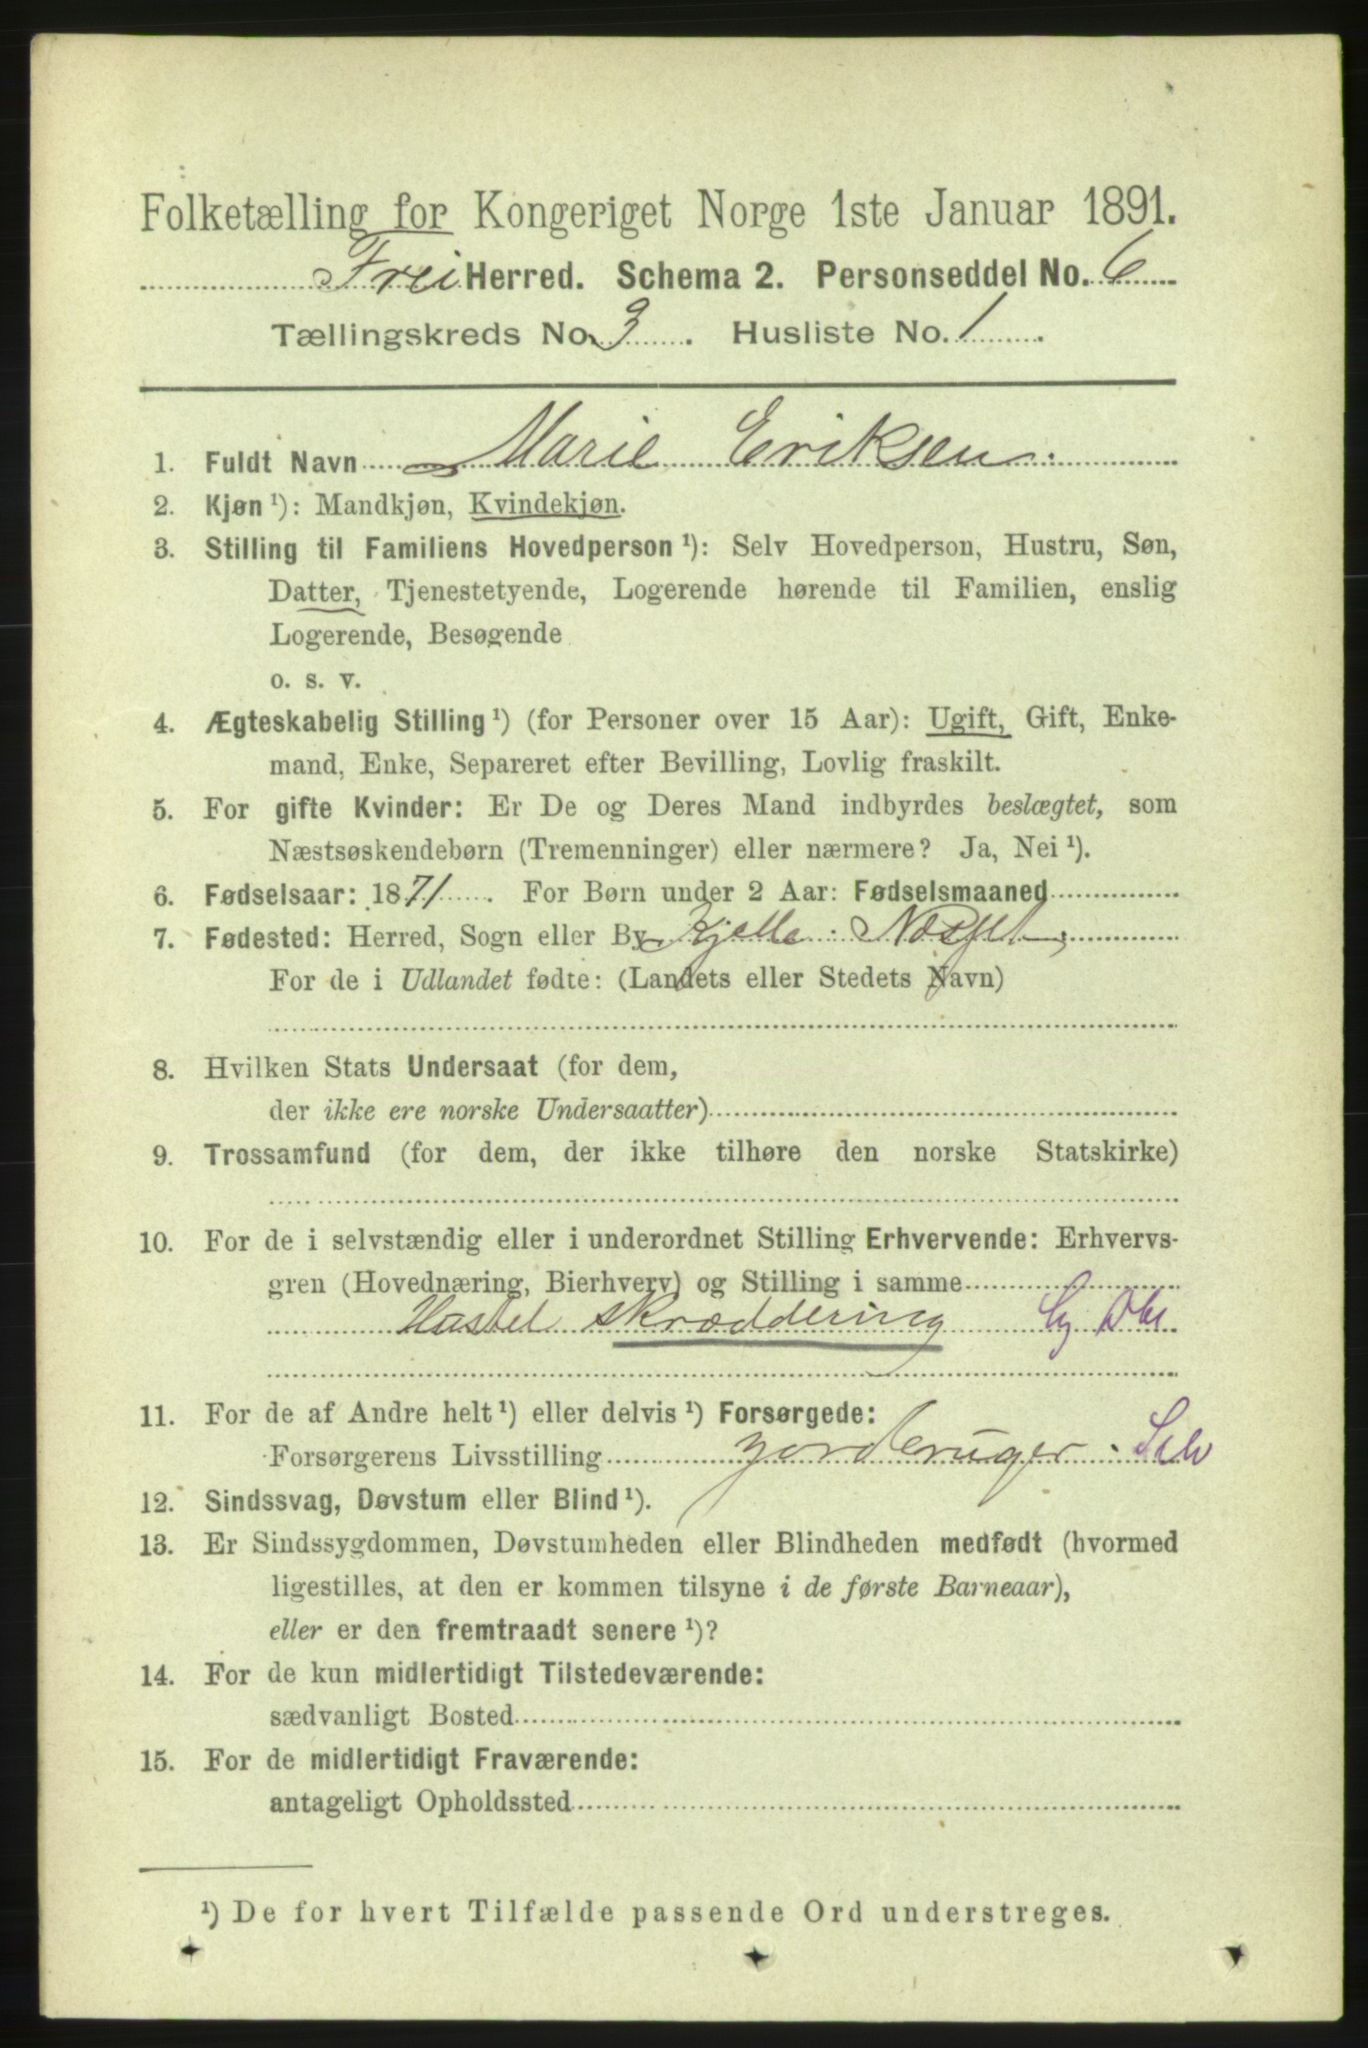 Folketælling for Kongeriget Norge 1ste Januar 1891.
Frei Herred. Schema 2. Personseddel No. 6
Tællingskreds No. 3. Husliste No. 1.
1. Fuldt Navn Marie Eriksen.
2. Kjøn ¹): Mandkjøn, Kvindekjøn.
3. Stilling til Familiens Hovedperson ¹): Selv Hovedperson, Hustru, Søn,
Datter, Tjenestetyende, Logerende hørende til Familien, enslig
Logerende, Besøgende
o. s. v.
4. Ægteskabelig Stilling ¹) (for Personer over 15 Aar): Ugift, Gift, Enke-
mand, Enke, Separeret efter Bevilling, Lovlig fraskilt.
5. For gifte Kvinder: Er De og Deres Mand indbyrdes beslægtet, som
Næstsøskendebørn (Tremenninger) eller nærmere? Ja, Nei ¹).
6. Fødselsaar: 1871. For Børn under 2 Aar: Fødselsmaaned
7. Fødested: Herred, Sogn eller By
For de i Udlandet fødte: (Landets eller Stedets Navn)
8. Hvilken Stats Undersaat (for dem,
der ikke ere norske Undersaatter)
9. Trossamfund (for dem, der ikke tilhøre den norske Statskirke)
10. For de i selvstændig eller i underordnet Stilling Erhvervende: Erhvervs-
gren (Hovednæring, Bierhverv) og Stilling i samme
skræddering
11. For de af Andre helt ¹) eller delvis ¹) Forsørgede:
Forsørgerens Livsstilling Selv
12. Sindssvag, Døvstum eller Blind ¹).
13. Er Sindssygdommen, Døvstumheden eller Blindheden medfødt (hvormed
ligestilles, at den er kommen tilsyne i de første Barneaar),
eller er den fremtraadt senere ¹)?
14. For de kun midlertidigt Tilstedeværende:
sædvanligt Bosted
15. For de midlertidigt Fraværende:
antageligt Opholdssted
¹) De for hvert Tilfælde passende Ord understreges.